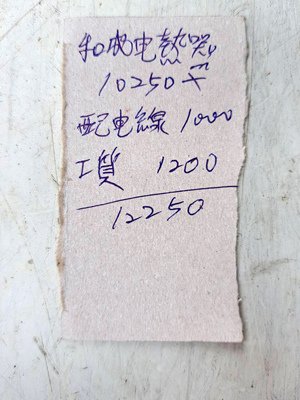 和成电热器
10250元
配电線 1000
工質 1200
12250